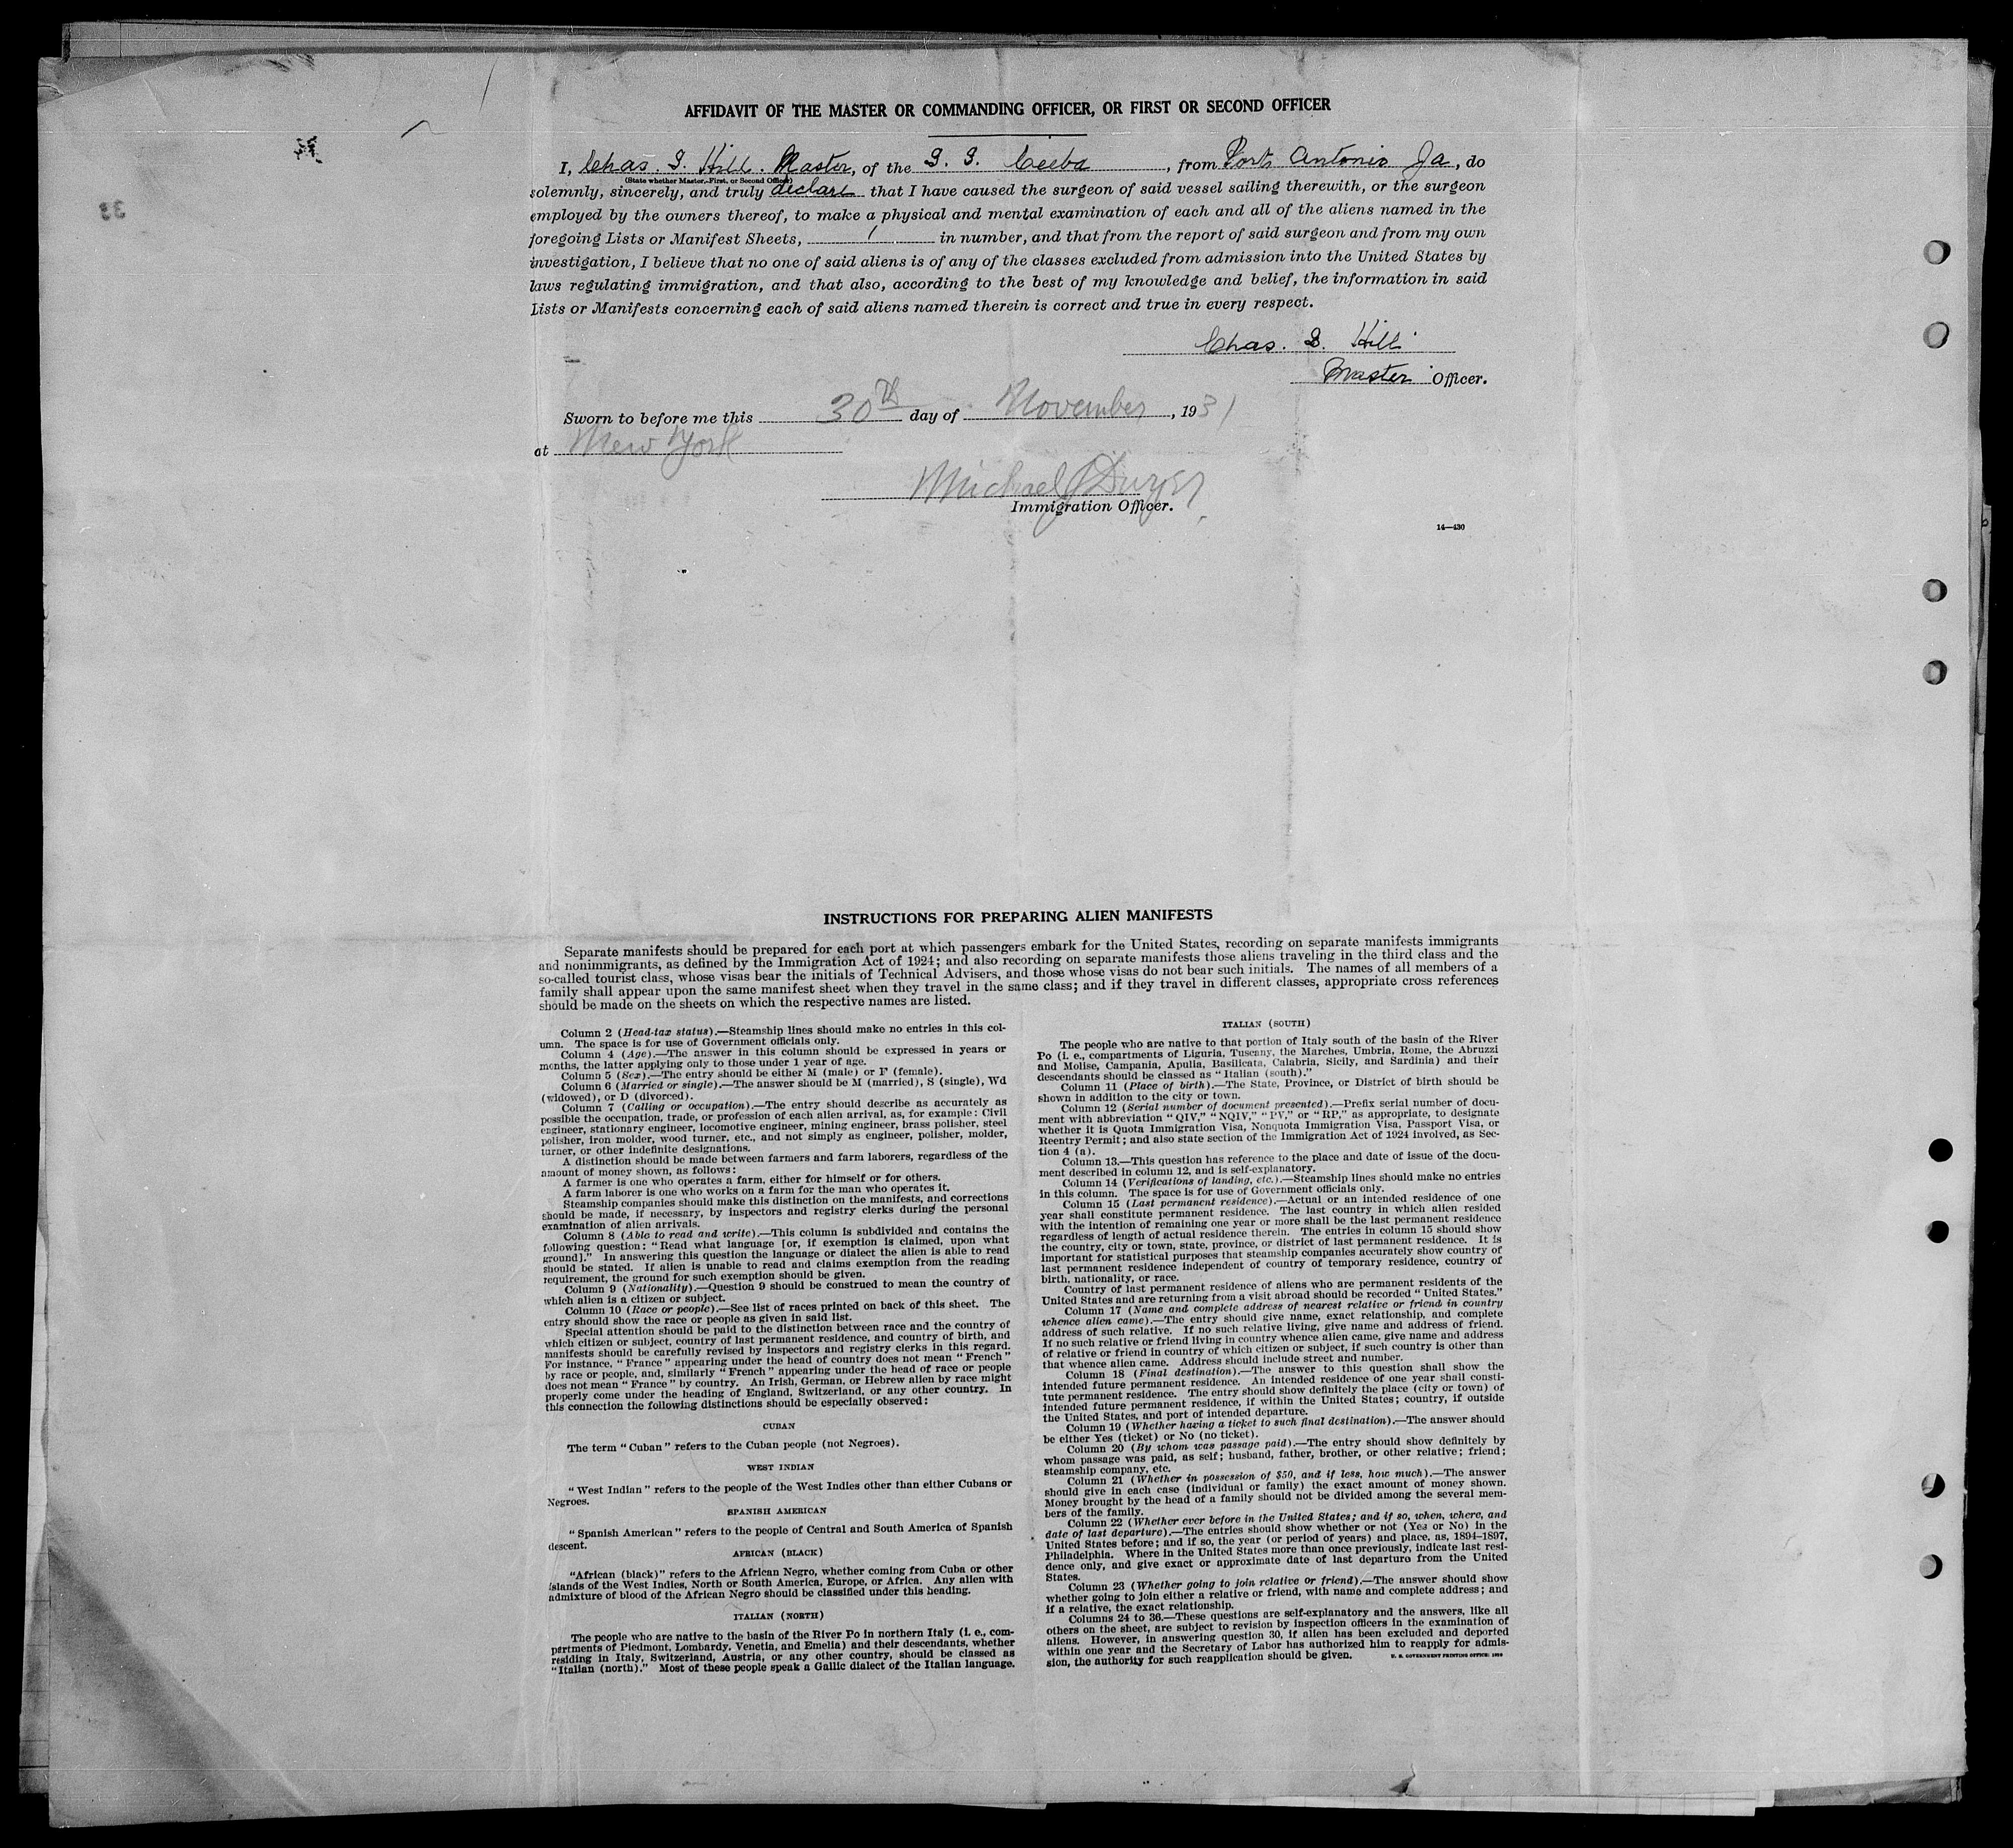 AFFIDAVIT OF THE MASTER OR COMMANDING OFFICER, OR FIRST OR SECOND OFFICER
I, Chas. S. Hill. Master, of the S. S. Ceiba, from Port Antonio Ja, do
(State whether Master, First, or Second Officer)
solemnly, sincerely, and truly declare that I have caused the surgeon of said vessel sailing therewith, or the surgeon
employed by the owners thereof, to make a physical and mental examination of each and all of the aliens named in the
foregoing Lists or Manifest Sheets, 1 in number, and that from the report of said surgeon and from my own
investigation, I believe that no one of said aliens is of any of the classes excluded from admission into the United States by
laws regulating immigration, and that also, according to the best of my knowledge and belief, the information in said
Lists or Manifests concerning each of said aliens named therein is correct and true in every respect.
Chas. S. Hill
Master Officer.
Sworn to before me this 30th day of November, 1931
at New York
Michael Dwyer
Immigration Officer.
14—430
INSTRUCTIONS FOR PREPARING ALIEN MANIFESTS
Separate manifests should be prepared for each port at which passengers embark for the United States, recording on separate manifests immigrants
and nonimmigrants, as defined by the Immigration Act of 1924; and also recording on separate manifests those aliens traveling in the third class and the
so-called tourist class, whose visas bear the initials of Technical Advisers, and those whose visas do not bear such initials. The names of all members of a
family shall appear upon the same manifest sheet when they travel in the same class; and if they travel in different classes, appropriate cross references
should be made on the sheets on which the respective names are listed.
Column 2 (Head-tax status).—Steamship lines should make no entries in this col-
umn. The space is for use of Government officials only.
Column 4 (Age).—The answer in this column should be expressed in years or
months, the latter applying only to those under 1 year of age.
Column 5 (Sex).—The entry should be either M (male) or F (female).
Column 6 (Married or single).—The answer should be M (married), S (single), Wd
(widowed), or D (divorced).
Column 7 (Calling or occupation).—The entry should describe as accurately as
possible the occupation, trade, or profession of each alien arrival, as, for example: Civil
engineer, stationary engineer, locomotive engineer, mining engineer, brass polisher, steel
polisher, iron molder, wood turner, etc., and not simply as engineer, polisher, molder,
turner, or other indefinite designations.
A distinction should be made between farmers and farm laborers, regardless of the
amount of money shown, as follows:
A farmer is one who operates a farm, either for himself or for others.
A farm laborer is one who works on a farm for the man who operates it.
Steamship companies should make this distinction on the manifests, and corrections
should be made, if necessary, by inspectors and registry clerks during the personal
examination of alien arrivals.
Column 8 (Able to read and write).—This column is subdivided and contains the
following question: "Read what language [or, if exemption is claimed, upon what
ground]." In answering this question the language or dialect the alien is able to read
should be stated. If alien is unable to read and claims exemption from the reading
requirement, the ground for such exemption should be given.
Column 9 (Nationality).—Question 9 should be construed to mean the country of
which alien is a citizen or subject.
Column 10 (Race or people).—See list of races printed on back of this sheet. The
entry should show the race or people as given in said list.
Special attention should be paid to the distinction between race and the country of
which citizen or subject, country of last permanent residence, and country of birth, and
manifests should be carefully revised by inspectors and registry clerks in this regard.
For instance, "France" appearing under the head of country does not mean "French"
by race or people, and, similarly "French" appearing under the head of race or people
does not mean "France" by country. An Irish, German, or Hebrew alien by race might
properly come under the heading of England, Switzerland, or any other country. In
this connection the following distinctions should be especially observed:
CUBAN
The term "Cuban" refers to the Cuban people (not Negroes).
WEST INDIAN
"West Indian" refers to the people of the West Indies other than either Cubans or
Negroes.
SPANISH AMERICAN
"Spanish American" refers to the people of Central and South America of Spanish
descent.
AFRICAN (BLACK)
"African (black)" refers to the African Negro, whether coming from Cuba or other
islands of the West Indies, North or South America, Europe, or Africa. Any alien with
admixture of blood of the African Negro should be classified under this heading.
ITALIAN (NORTH)
The people who are native to the basin of the River Po in northern Italy (i. e., com-
partments of Piedmont, Lombardy, Venetia, and Emelia) and their descendants, whether
residing in Italy, Switzerland, Austria, or any other country, should be classed as
"Italian (north)." Most of these people speak a Gallic dialect of the Italian language.
ITALIAN (SOUTH)
The people who are native to that portion of Italy south of the basin of the River
Po (i. e., compartments of Liguria, Tuscany, the Marches, Umbria, Rome, the Abruzzi
and Molise, Campania, Apulia, Basilicata, Calabria, Sicily, and Sardinia) and their
descendants should be classed as "Italian (south)."
Column 11 (Place of birth).—The State, Province, or District of birth should be
shown in addition to the city or town.
Column 12 (Serial number of document presented).—Prefix serial number of docu-
ment with abbreviation "QIV," "NQIV," "PV," or "RP," as appropriate, to designate
whether it is Quota Immigration Visa, Nonquota Immigration Visa, Passport Visa, or
Reentry Permit; and also state section of the Immigration Act of 1924 involved, as Sec-
tion 4 (a).
Column 13.—This question has reference to the place and date of issue of the docu-
ment described in column 12, and is self-explanatory.
Column 14 (Verifications of landing, etc.).—Steamship lines should make no entries
in this column. The space is for use of Government officials only.
Column 15 (Last permanent residence).—Actual or an intended residence of one
year shall constitute permanent residence. The last country in which alien resided
with the intention of remaining one year or more shall be the last permanent residence
regardless of length of actual residence therein. The entries in column 15 should show
the country, city or town, state, province, or district of last permanent residence. It is
important for statistical purposes that steamship companies accurately show country of
last permanent residence independent of country of temporary residence, country of
birth, nationality, or race.
Country of last permanent residence of aliens who are permanent residents of the
United States and are returning from a visit abroad should be recorded "United States."
Column 17 (Name and complete address of nearest relative or friend in country
whence alien came).—The entry should give name, exact relationship, and complete
address of such relative. If no such relative living, give name and address of friend.
If no such relative or friend living in country whence alien came, give name and address
of relative or friend in country of which citizen or subject, if such country is other than
that whence alien came. Address should include street and number.
Column 18 (Final destination).—The answer to this question shall show the
intended future permanent residence. An intended residence of one year shall consti-
tute permanent residence. The entry should show definitely the place (city or town) of
intended future permanent residence, if within the United States; country, if outside
the United States, and port of intended departure.
Column 19 (Whether having a ticket to such final destination).—The answer should
be either Yes (ticket) or No (no ticket).
Column 20 (By whom was passage paid).—The entry should show definitely by
whom passage was paid, as self; husband, father, brother, or other relative; friend;
steamship company, etc.
Column 21 (Whether in possession of $50, and if less, how much).—The answer
should give in each case (individual or family) the exact amount of money shown.
Money brought by the head of a family should not be divided among the several mem-
bers of the family.
Column 22 (Whether ever before in the United States; and if so, when, where, and
date of last departure).—The entries should show whether or not (Yes or No) in the
United States before; and if so, the year (or period of years) and place, as, 1894–1897,
Philadelphia. Where in the United States more than once previously, indicate last resi-
dence only, and give exact or approximate date of last departure from the United
States.
Column 23 (Whether going to join relative or friend).—The answer should show
whether going to join either a relative or friend, with name and complete address; and
if a relative, the exact relationship.
Columns 24 to 36.—These questions are self-explanatory and the answers, like all
others on the sheet, are subject to revision by inspection officers in the examination of
aliens. However, in answering question 30, if alien has been excluded and deported
within one year and the Secretary of Labor has authorized him to reapply for admis-
sion, the authority for such reapplication should be given.